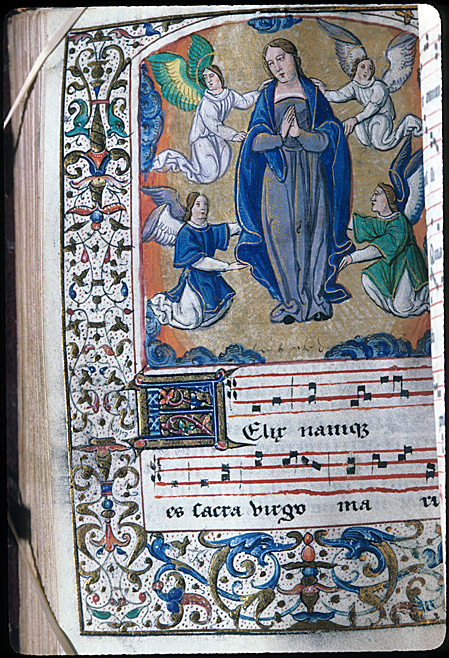 FElix namqꝫ
es sacra virgo ma ri